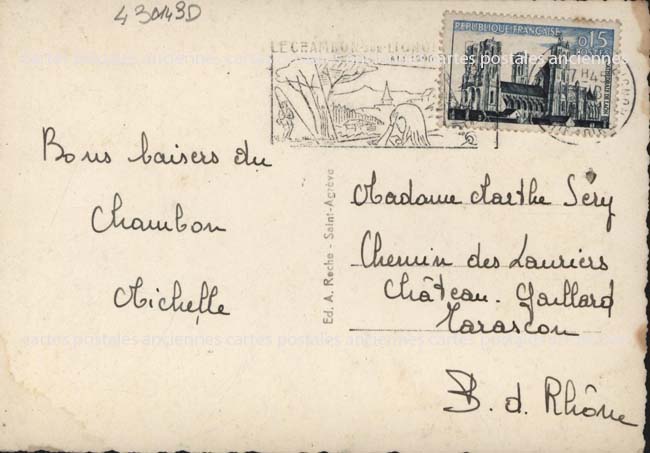 43043D
LE CHAMBON-sur-LIGNON
REPUBLIQUE FRANÇAISE
0,15
POSTES
17 H45
cartes postales anciennes cartes postales anciennes cartes postales anciennes
Bons baisers du
Chambon
Michelle
Ed. A. Roche - Saint-Agrève
Madame Marthe Séry
Chemin des Lauriers
Château-Gaillard
Tarascon
B. d. Rhône
cartes postales anciennes cartes postales anciennes cartes postales anciennes